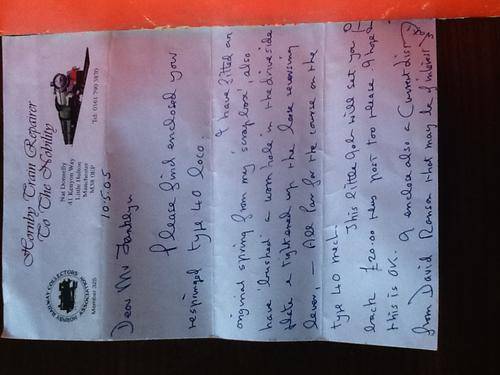 Hornby Train Repairer
To The Nobility
HORNBY RAILWAY COLLECTORS' ASSOCIATION
Member 305
Nat Donnelly
41 Kenyon Way
Little Hulton
Manchester
Tel: 0161 790 3870
10.5.05
Dear Mr
Please find enclosed your
respringed type 40 loco.
I have fitted an
original spring from my 'scrapbox' also
have 'bushed' a worn hole in the drive side
plate & tightened up the loose reversing
lever, — All Par for the course on the
type 40 mech.
This little job will set you
back £20.00 plus post too please I hope
this is OK. I enclose also a Current dist
from David Ranson that may be of interest